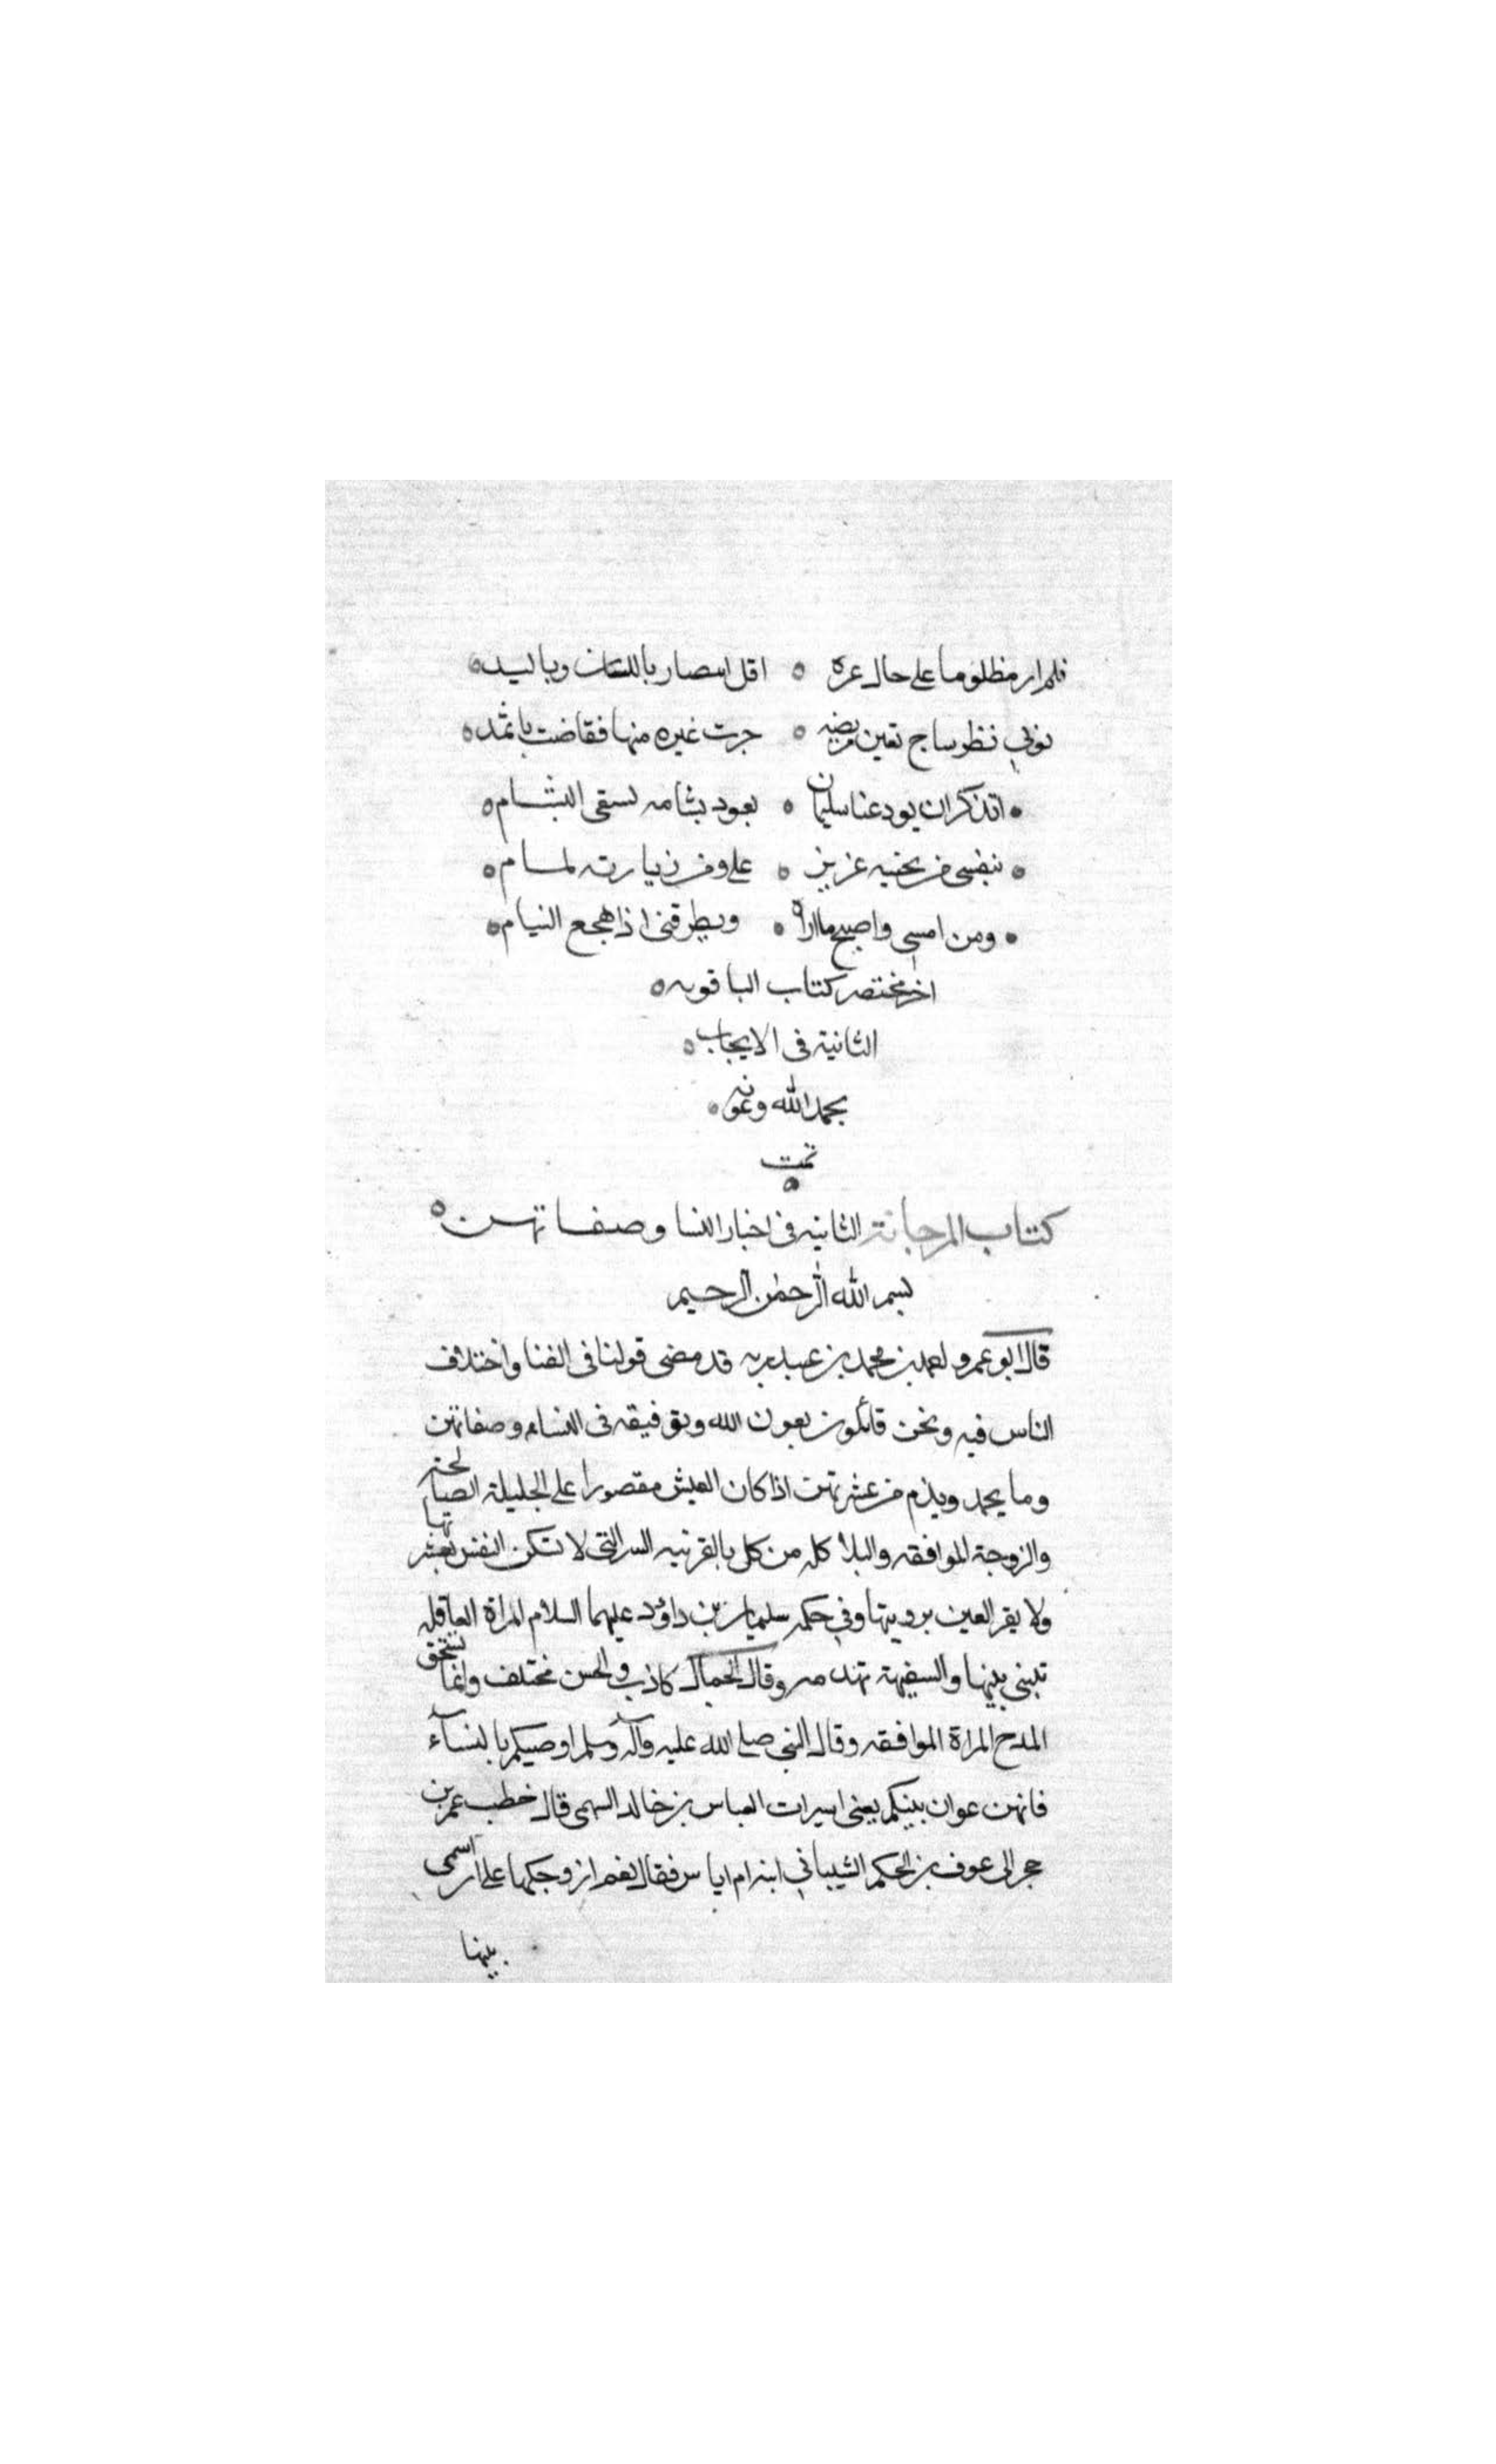 فلم ار مظلوما على حال عزة ○ اقل انتصار باللسان وباليد ○
نظر ساج بعين مريضه ○ جرت غيره منها ففاضت باثمد ○
اتذكر ان يودعنا سليمان ○ بعود بشامه لسقى البشام ○
بنفسى من تجنيه عزيز ○ على ومن زيارته لمام ○
ومن امسى واصبح ما اراه ○ ويطرقنى اذا هجع النيام ○
اخر مختصر كتاب الياقوته ○
الثانية فى الايجاب ○
بحمد الله وعونه ○
تمت
كتاب المرجانة الثانيه فى اخبار النسا وصفاتهن ○
بسم الله الرحمن الرحيم
قال ابو عمرو احمد بن محمد بن عبد ربه قد مضى قولنا فى الغنا واختلاف
الناس فيه ونحن قائلون بعون الله وتوفيقه فى النساء وصفاتهن
وما يحمد ويذم من عشرتهن اذا كان العيش مقصورا على الجليلة الصالحة
والزوجة الموافقه والبلا كله من كل بالقرنيه السو التى لا تسكن النفس بعشرتها
ولا يقر العين برويتها وفى حكمه سليمان بن داود عليهما السلام المراة العاقله
تبنى بيتها والسفيهة تهدمه وقال الجمال كاذب والحسن مختلف وانما تستحق
المدح المراة الموافقه وقال النبى صلى الله عليه وآله وسلم اوصيكم بالنسآء
فانهن عوان بينكم يعنى اسيرات العباس بن خالد السهمى قال خطب عمر بن
حجر الى عوف بن الحكم الشيبانى ابنه ام اياس فقال نعم ازوجكها على ان اسمى
بينها